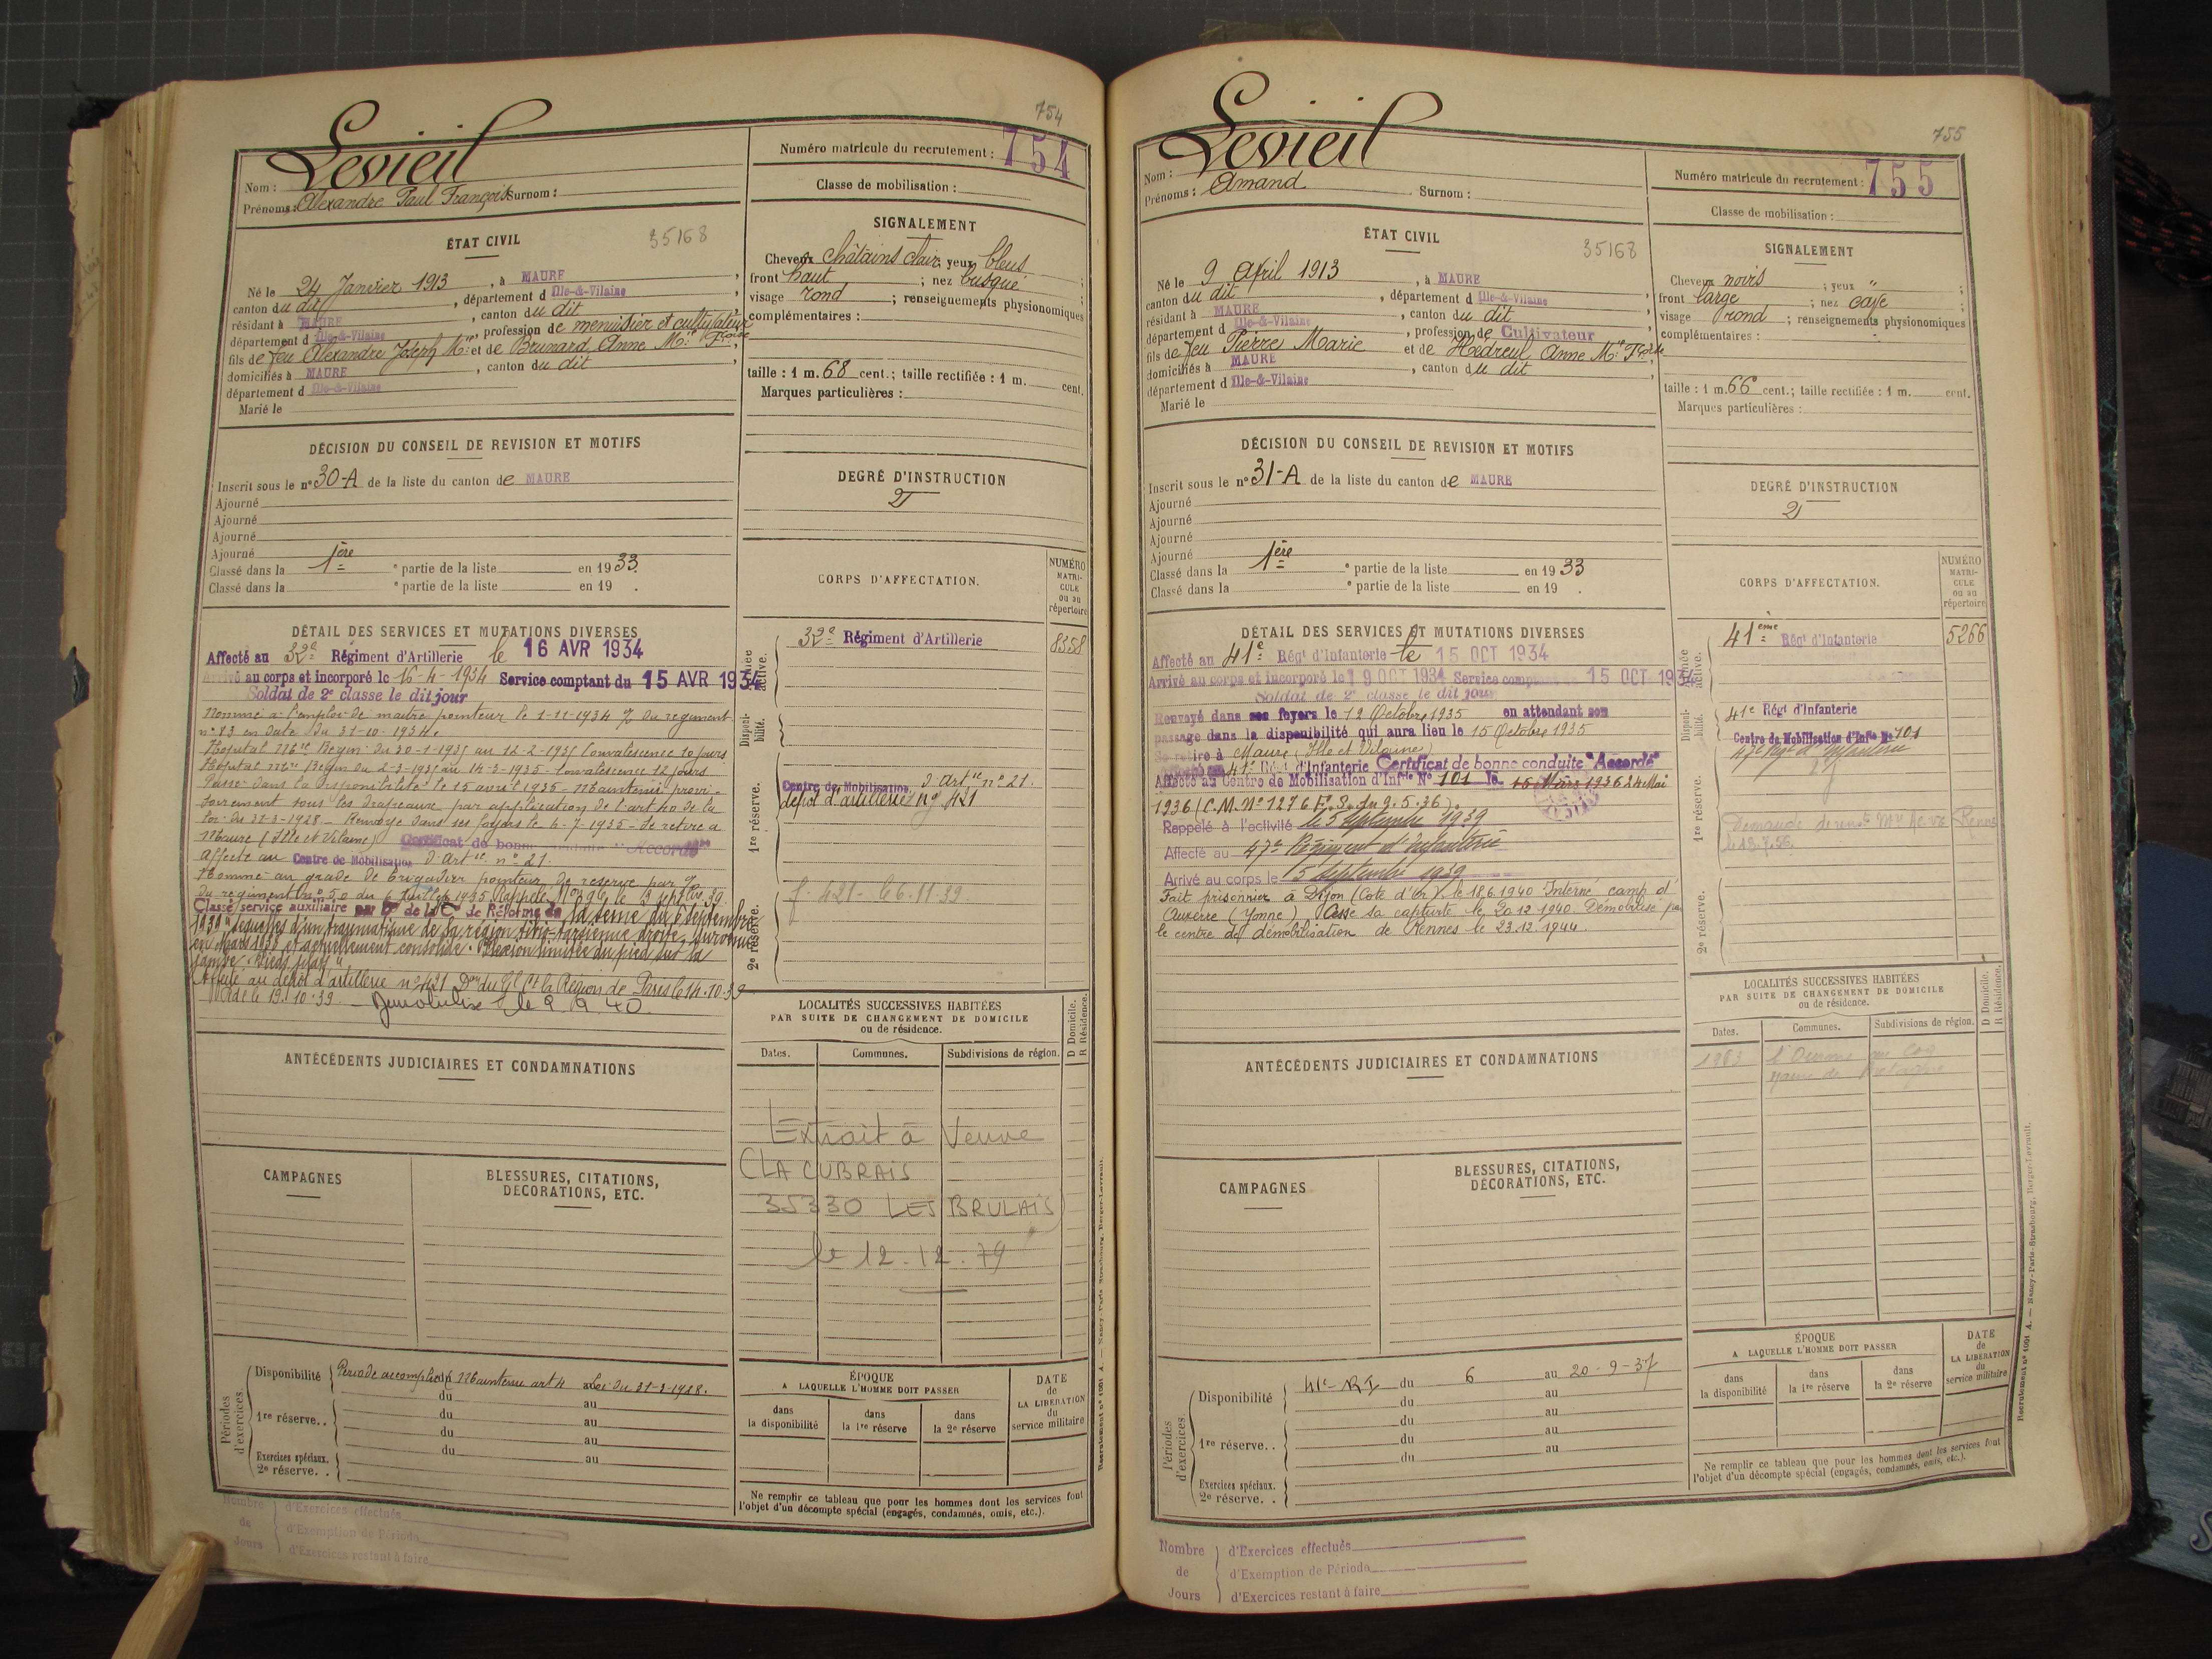 754
Levieil
Nom :
Prénoms : Alexandre Paul François Surnom :
Numéro matricule du recrutement : 754
Classe de mobilisation :
ÉTAT CIVIL
35168
Né le 24 Janvier 1913, à MAURE,
canton du dit, département d Ille-&-Vilaine,
résidant à MAURE, canton du dit
département d Ille-&-Vilaine, profession de menuisier et cultivateur
fils de feu Alexandre Joseph Mie et de Brunard Anne Mie Fçoise
domiciliés à MAURE, canton du dit
département d Ille-&-Vilaine
Marié le
SIGNALEMENT
Cheveux châtains clair ; yeux bleus ;
front haut ; nez busqué ;
visage rond ; renseignements physionomiques
complémentaires :
taille : 1 m. 68 cent. ; taille rectifiée : 1 m. cent.
Marques particulières :
DÉCISION DU CONSEIL DE REVISION ET MOTIFS
Inscrit sous le n° 30-A de la liste du canton de MAURE
Ajourné
Ajourné
Ajourné
Ajourné
Classé dans la 1ère e partie de la liste en 1933.
Classé dans la e partie de la liste en 19 .
DEGRÉ D'INSTRUCTION
2
DÉTAIL DES SERVICES ET MUTATIONS DIVERSES
Affecté au 32e Régiment d'Artillerie le 16 AVR 1934
Arrivé au corps et incorporé le 16-4-1934 Service comptant du 15 AVR 1934
Soldat de 2e classe le dit jour
Nommé à l'emploi de maître pointeur le 1-11-1934 % du régiment
n° 83 en date du 31-10-1934.
Hôpital Mre Begin du 30-1-1935 au 12-2-1935 Convalescence 10 jours
Hôpital Mre Begin du 2-3-1935 au 14-3-1935 - Convalescence 12 jours
Passé dans la disponibilité le 15 avril 1935 - Maintenu provi-
soirement sous les drapeaux par application de l'art 40 de la
loi du 31-3-1928 - Renvoyé dans ses foyers le 6-7-1935 - Se retire à
Maure (Ille et Vilaine) Certificat de bonne conduite "Accordé"
Affecté au Centre de Mobilisation d'Artie n° 21.
Nommé au grade de Brigadier pointeur de réserve par %
du régiment n° 50 du 6 Juillet 1935 Rappelé le 3 septbre 39.
Classé service auxiliaire par Don de la Con de Réforme de la Seine du 6 septembre
1939 "séquelles d'un traumatisme de la région tibio-tarsienne droite, survenu
en Mars 1935 et actuellement consolidé. Flexion limitée du pied sur la
jambe. Pieds plats"
Affecté au dépôt d'artillerie n° 421 Don du Gl Ct la Région de Paris le 14.10.39
19.10.39. - Démobilisé le 2.9.40.
CORPS D'AFFECTATION.
NUMÉRO MATRICULE ou au répertoire
Armée active.
32e Régiment d'Artillerie 8358
Disponibilité.
1re réserve.
Centre de Mobilisation d'Artie n° 21.
dépôt d'artillerie n° 421
2e réserve.
f. 421 - 66.11.39.
LOCALITÉS SUCCESSIVES HABITÉES
PAR SUITE DE CHANGEMENT DE DOMICILE
ou de résidence.
Dates. Communes. Subdivisions de région. D Domicile. R Résidence.
Extrait à Veuve
(LA CUBRAIS
35330 LES BRULAIS)
le 12.12.79
ANTÉCÉDENTS JUDICIAIRES ET CONDAMNATIONS
CAMPAGNES
BLESSURES, CITATIONS,
DÉCORATIONS, ETC.
Périodes d'exercices
Disponibilité Période accomplie Maintenu art 4 Loi du 31-3-1928.
du au
1re réserve. . du au
du au
Exercices spéciaux. du au
2e réserve. .
ÉPOQUE
A LAQUELLE L'HOMME DOIT PASSER
dans la disponibilité
dans la 1re réserve
dans la 2e réserve
DATE de LA LIBÉRATION du service militaire
Ne remplir ce tableau que pour les hommes dont les services font
l'objet d'un décompte spécial (engagés, condamnés, omis, etc.).
Nombre de Jours
d'Exercices effectués
d'Exemption de Période
d'Exercices restant à faire
755
Levieil
Nom :
Prénoms : Amand Surnom :
Numéro matricule du recrutement : 755
Classe de mobilisation :
ÉTAT CIVIL
35168
Né le 9 Avril 1913, à MAURE
canton du dit, département d Ille-&-Vilaine,
résidant à MAURE, canton du dit
département d Ille-&-Vilaine, profession de Cultivateur
fils de feu Pierre Marie et de Hédreul Anne Mie Fçoise
domiciliés à MAURE, canton du dit
département d Ille-&-Vilaine
Marié le
SIGNALEMENT
Cheveux noirs ; yeux " ;
front large ; nez cave
visage rond ; renseignements physionomiques
complémentaires :
taille : 1 m. 66 cent. ; taille rectifiée : 1 m. cent.
Marques particulières :
DÉCISION DU CONSEIL DE REVISION ET MOTIFS
Inscrit sous le n° 31-A de la liste du canton de MAURE
Ajourné
Ajourné
Ajourné
Ajourné
Classé dans la 1ère e partie de la liste en 1933
Classé dans la e partie de la liste en 19 .
DEGRÉ D'INSTRUCTION
2
DÉTAIL DES SERVICES ET MUTATIONS DIVERSES
Affecté au 41e Régt d'Infanterie le 15 OCT 1934
Arrivé au corps et incorporé le 19 OCT 1934 Service comptant du 15 OCT 1934
Soldat de 2e classe le dit jour
Renvoyé dans ses foyers le 12 Octobre 1935 en attendant son
passage dans la disponibilité qui aura lieu le 15 Octobre 1935
Se retire à Maure (Ille et Vilaine)
Affecté au 41e Régt d'Infanterie Certificat de bonne conduite "Accordé"
Affecté au Centre de Mobilisation d'Infie N° 101 le 16 Mars 1936 24 Mai
1936 (C.M. N° 1276 E.S. du 9.5.36).
Rappelé à l'activité le 5 septembre 1939
Affecté au 47e Régiment d'Infanterie
Arrivé au corps le 5 septembre 1939
Fait prisonnier à Dijon (Côte d'Or) le 18.6.1940 Interné camp d'
Auxerre (Yonne) Cesse sa captivité le 20.12.1940. Démobilisé par
le centre de démobilisation de Rennes le 23.12.1944.
CORPS D'AFFECTATION.
NUMÉRO MATRICULE ou au répertoire
Armée active.
41ème Régt d'Infanterie 5266
Disponibilité.
41e Régt d'Infanterie
Centre de Mobilisation d'Infie N° 101
47e Rgt d'Infanterie
1re réserve.
Demande de Rennes
2e réserve.
LOCALITÉS SUCCESSIVES HABITÉES
PAR SUITE DE CHANGEMENT DE DOMICILE
ou de résidence.
Dates. Communes. Subdivisions de région. D Domicile. R Résidence.
1963
Maure de Bretagne
ANTÉCÉDENTS JUDICIAIRES ET CONDAMNATIONS
CAMPAGNES
BLESSURES, CITATIONS,
DÉCORATIONS, ETC.
Périodes d'exercices
Disponibilité 41e RI du 6 au 20-9-37
du au
du au
1re réserve. . du au
du au
Exercices spéciaux.
2e réserve. .
ÉPOQUE
A LAQUELLE L'HOMME DOIT PASSER
dans la disponibilité
dans la 1re réserve
dans la 2e réserve
DATE de LA LIBÉRATION du service militaire
Ne remplir ce tableau que pour les hommes dont les services font
l'objet d'un décompte spécial (engagés, condamnés, omis, etc.).
Recrutement n° 1001 A. — Nancy-Paris-Strasbourg, Berger-Levrault.
Nombre de Jours
d'Exercices effectués
d'Exemption de Période
d'Exercices restant à faire